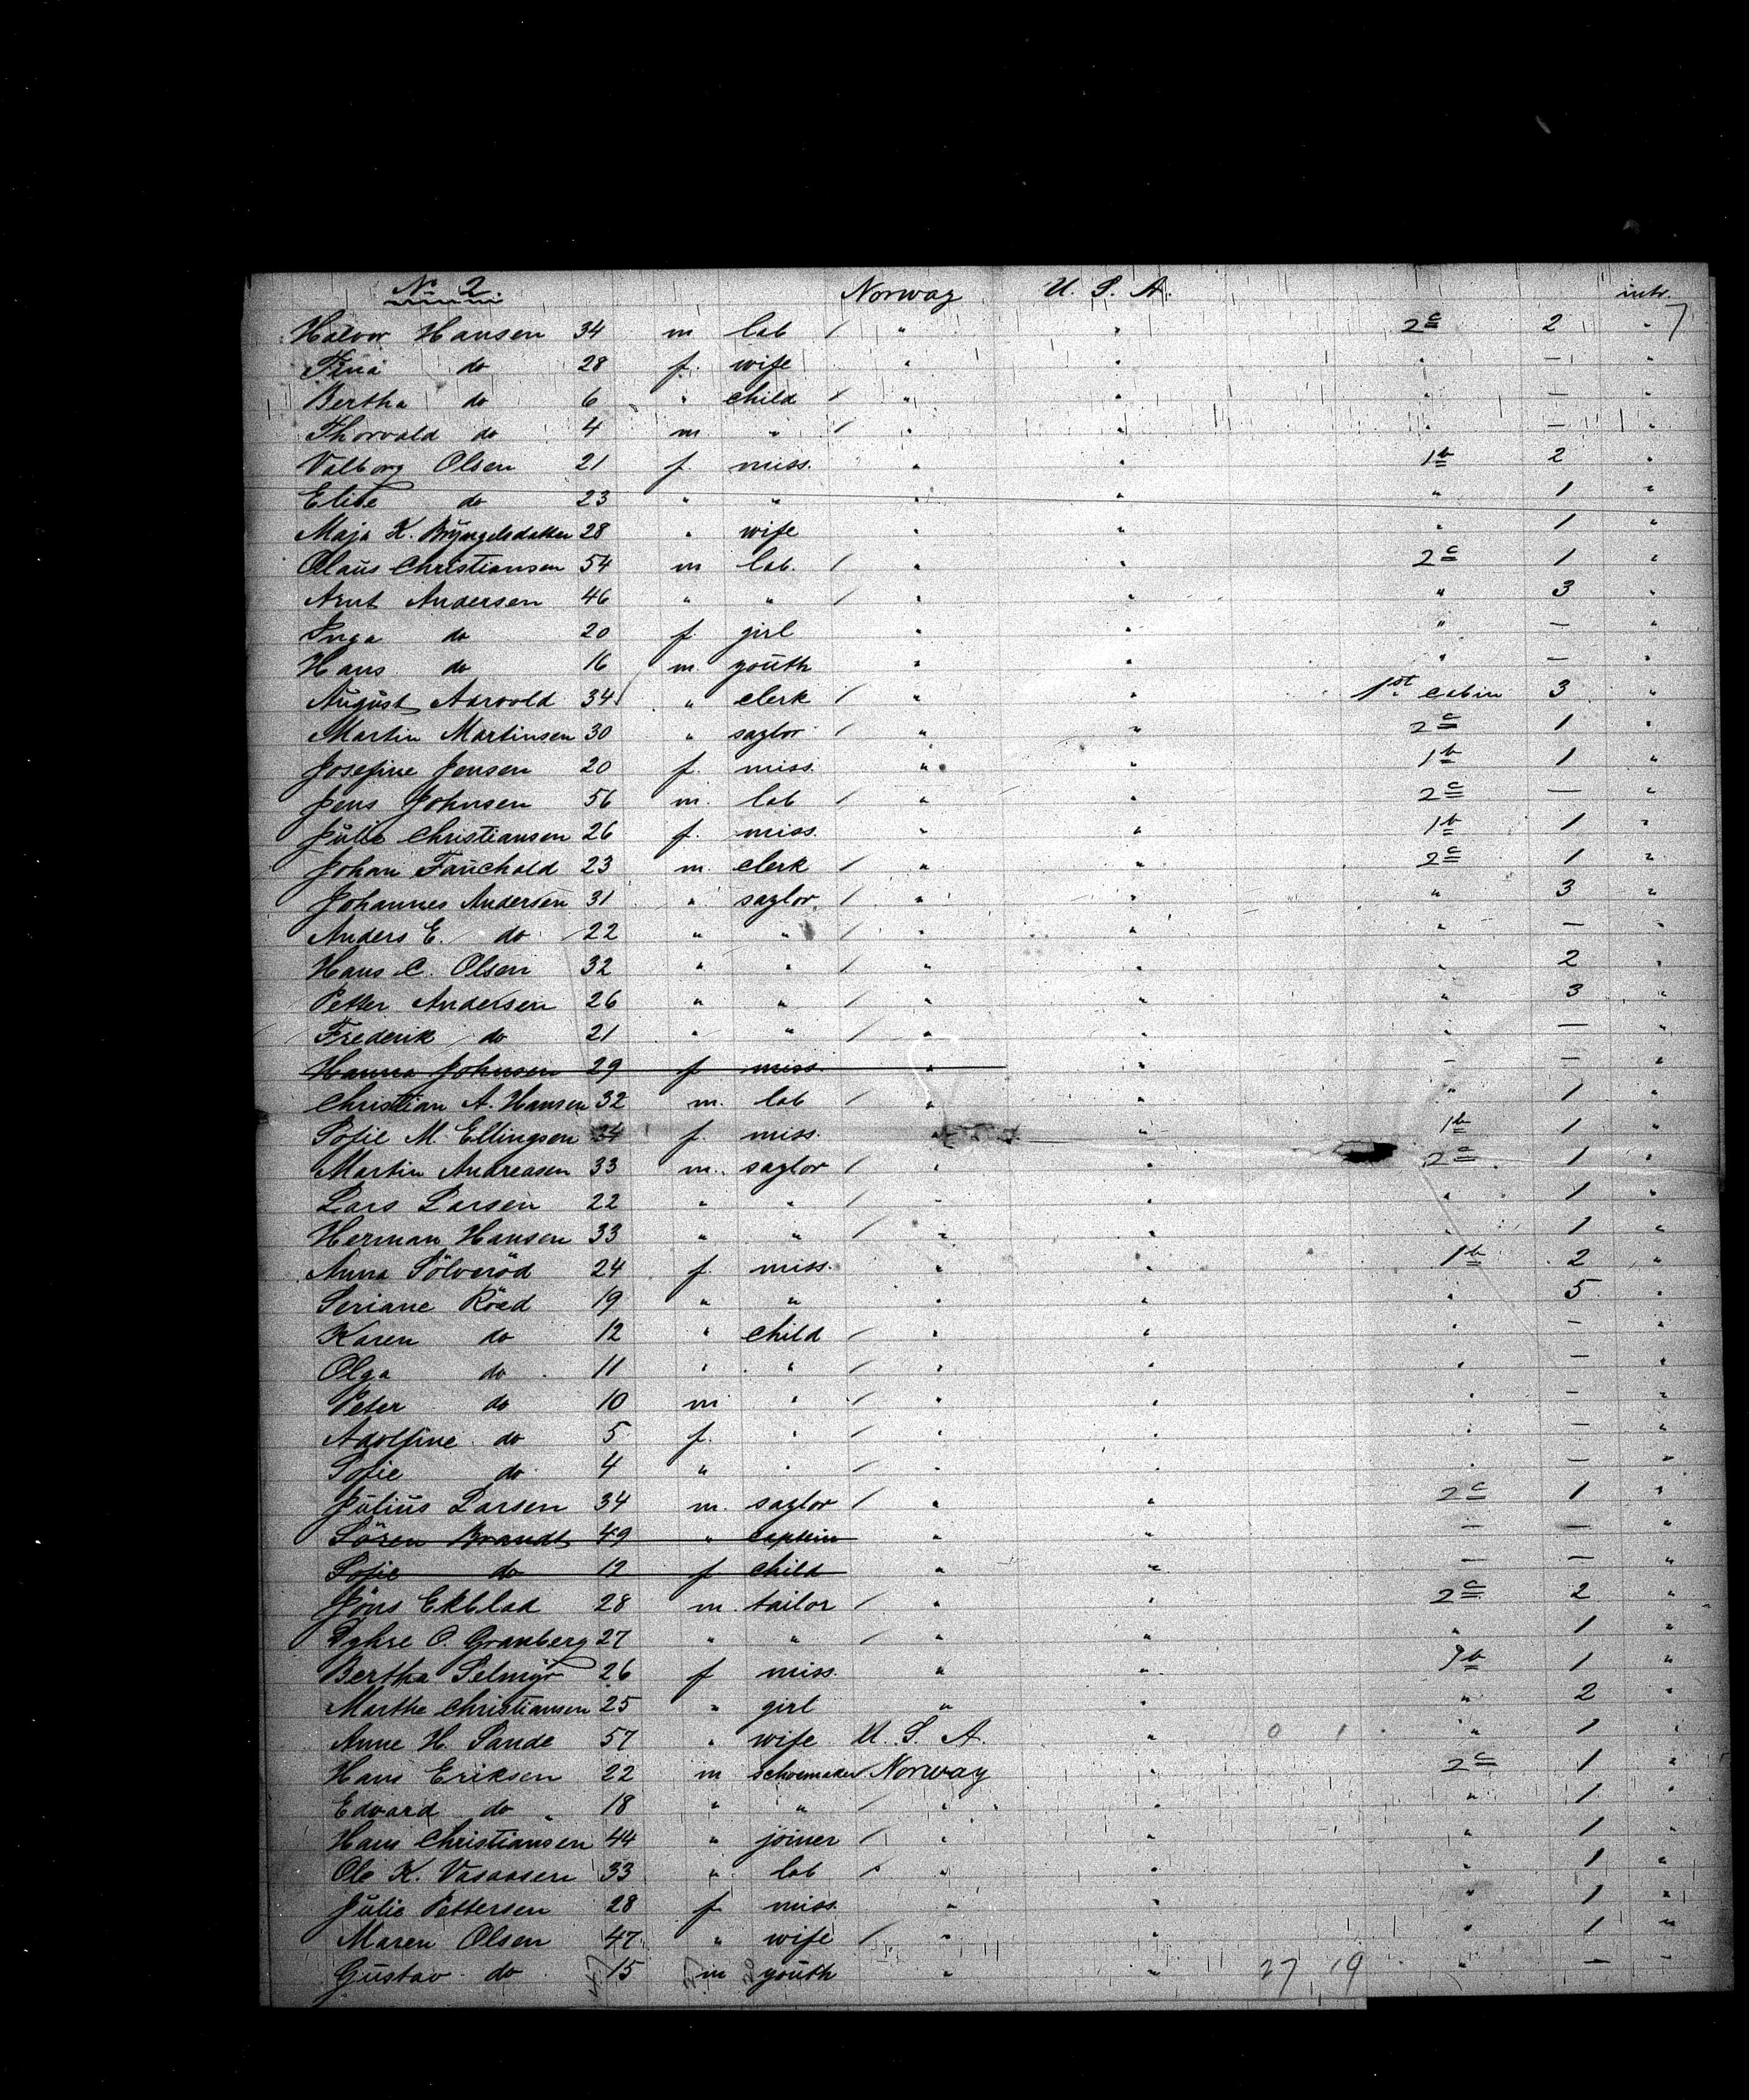 No 2 Norway U. S. A. intr.
Halvor Hansen 34 m lab / " " 2c 2 " 7
Tina do 28 f. wife " " " — "
Bertha do 6 " child / " " " — "
Thorvald do 4 m. " / " " " — "
Valborg Olsen 21 f. miss. " " 1b 2 "
Elise do 23 " " " " " 1 "
Maja K. Bryngelsdatter 28 " wife " " " 1 "
Olaus Christiansen 54 m lab. / " " 2c 1 "
Arnt Andersen 46 " " / " " " 3 "
Inga do 20 f girl " " " — "
Hans do 16 m. youth " " " — "
August Aarvold 34 " clerk / " " 1st cabin 3 "
Martin Martinsen 30 " saylor / " " 2c 1 "
Josefine Jensen 20 f. miss. " " 1b 1 "
Jens Johnsen 56 m. lab / " " 2c — "
Julie Christiansen 26 f. miss. " " 1b 1 "
Johan Fauchald 23 m. clerk / " " 2c 1 "
Johannes Andersen 31 " saylor / " " " 3 "
Anders E. do 22 " " / " " " — "
Hans C. Olsen 32 " " / " " " 2 "
Petter Andersen 26 " " / " " " 3 "
Frederik do 21 " " / " " " — "
Hanna Johnsen 29 f miss. " " — — "
Christian A. Hansen 32 m. lab / " " " 1 "
Sofie M. Ellingsen 34 f. miss. " " 1b 1 "
Martin Andreasen 33 m. saylor / " " 2c 1 "
Lars Larsen 22 " " / " " " 1 "
Herman Hansen 33 " " / " " " 1 "
Anna Sölveröd 24 f. miss. " " 1b 2 "
Seriane Röed 19 " " " " " 5 "
Karen do 12 " child / " " " — "
Olga do 11 " " / " " " — "
Peter do 10 m " / " " " — "
Adolfine do 5 f. " / " " " — "
Sofie do 4 " " / " " " — "
Julius Larsen 34 m. saylor / " " 2c 1 "
Sören Brandt 49 " captein " " — — "
Sofie do 12 f child " " — — "
Jöns Ekblad 28 m. tailor / " " 2c 2 "
O. Granberg 27 " " / " " " 1 "
Bertha Selmyr 26 f miss. " " 1b 1 "
Marthe Christiansen 25 " girl " " " 2 "
Anne H. Sande 57 " wife U. S. A. " 0 1 " 1 "
Hans Eriksen 22 m schoemaker Norway " 2c 1 "
Edvard do 18 " " / " " " 1 "
Hans Christiansen 44 " joiner / " " " 1 "
Ole K. Vasaasen 33 " lab / " " " 1 "
Julie Pettersen 28 f miss. " " " 1 "
Maren Olsen 47 " wife / " " " 1 "
Gustav do 15 m youth " " 27 19 " — "
47 27 20